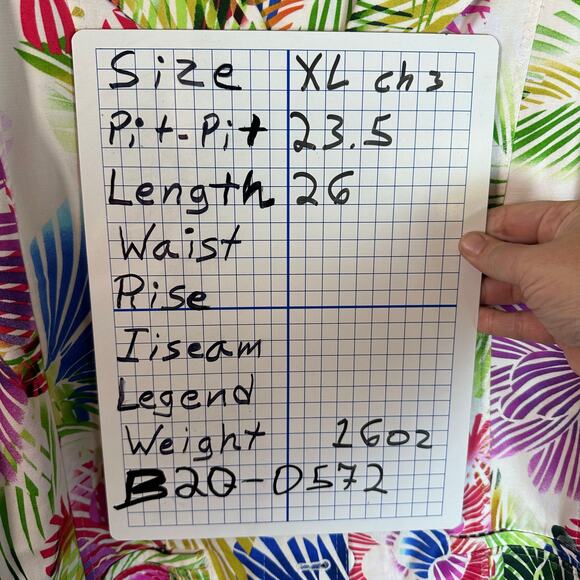 Size XL ch 3
Pit-Pit 23.5
Length 26
Waist
Rise
Iiseam
Legend
Weight 16oz
B20-0572